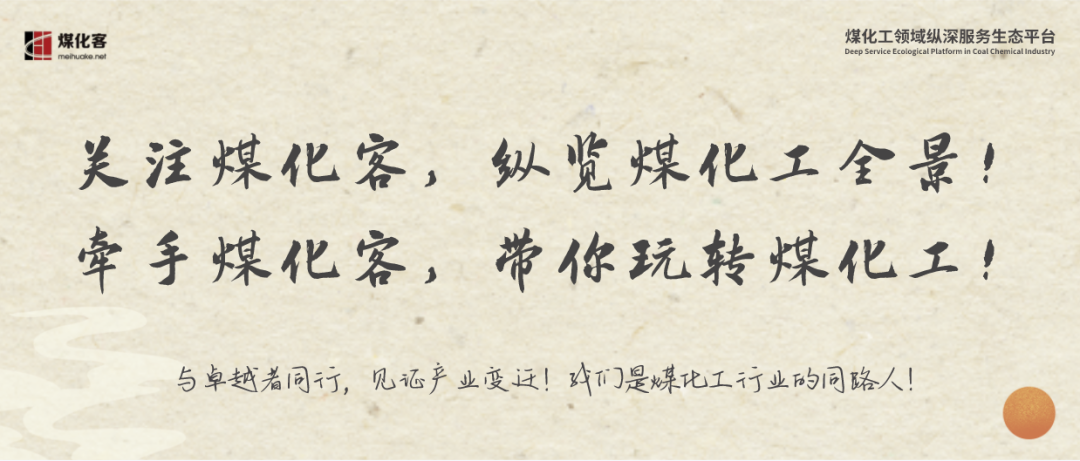 煤化客
meihuake.net
煤化工领域纵深服务生态平台
Deep Service Ecological Platform in Coal Chemical Industry
关注煤化客，纵览煤化工全景！
牵手煤化客，带你玩转煤化工！
与卓越者同行，见证产业变迁！我们是煤化工行业的同路人！